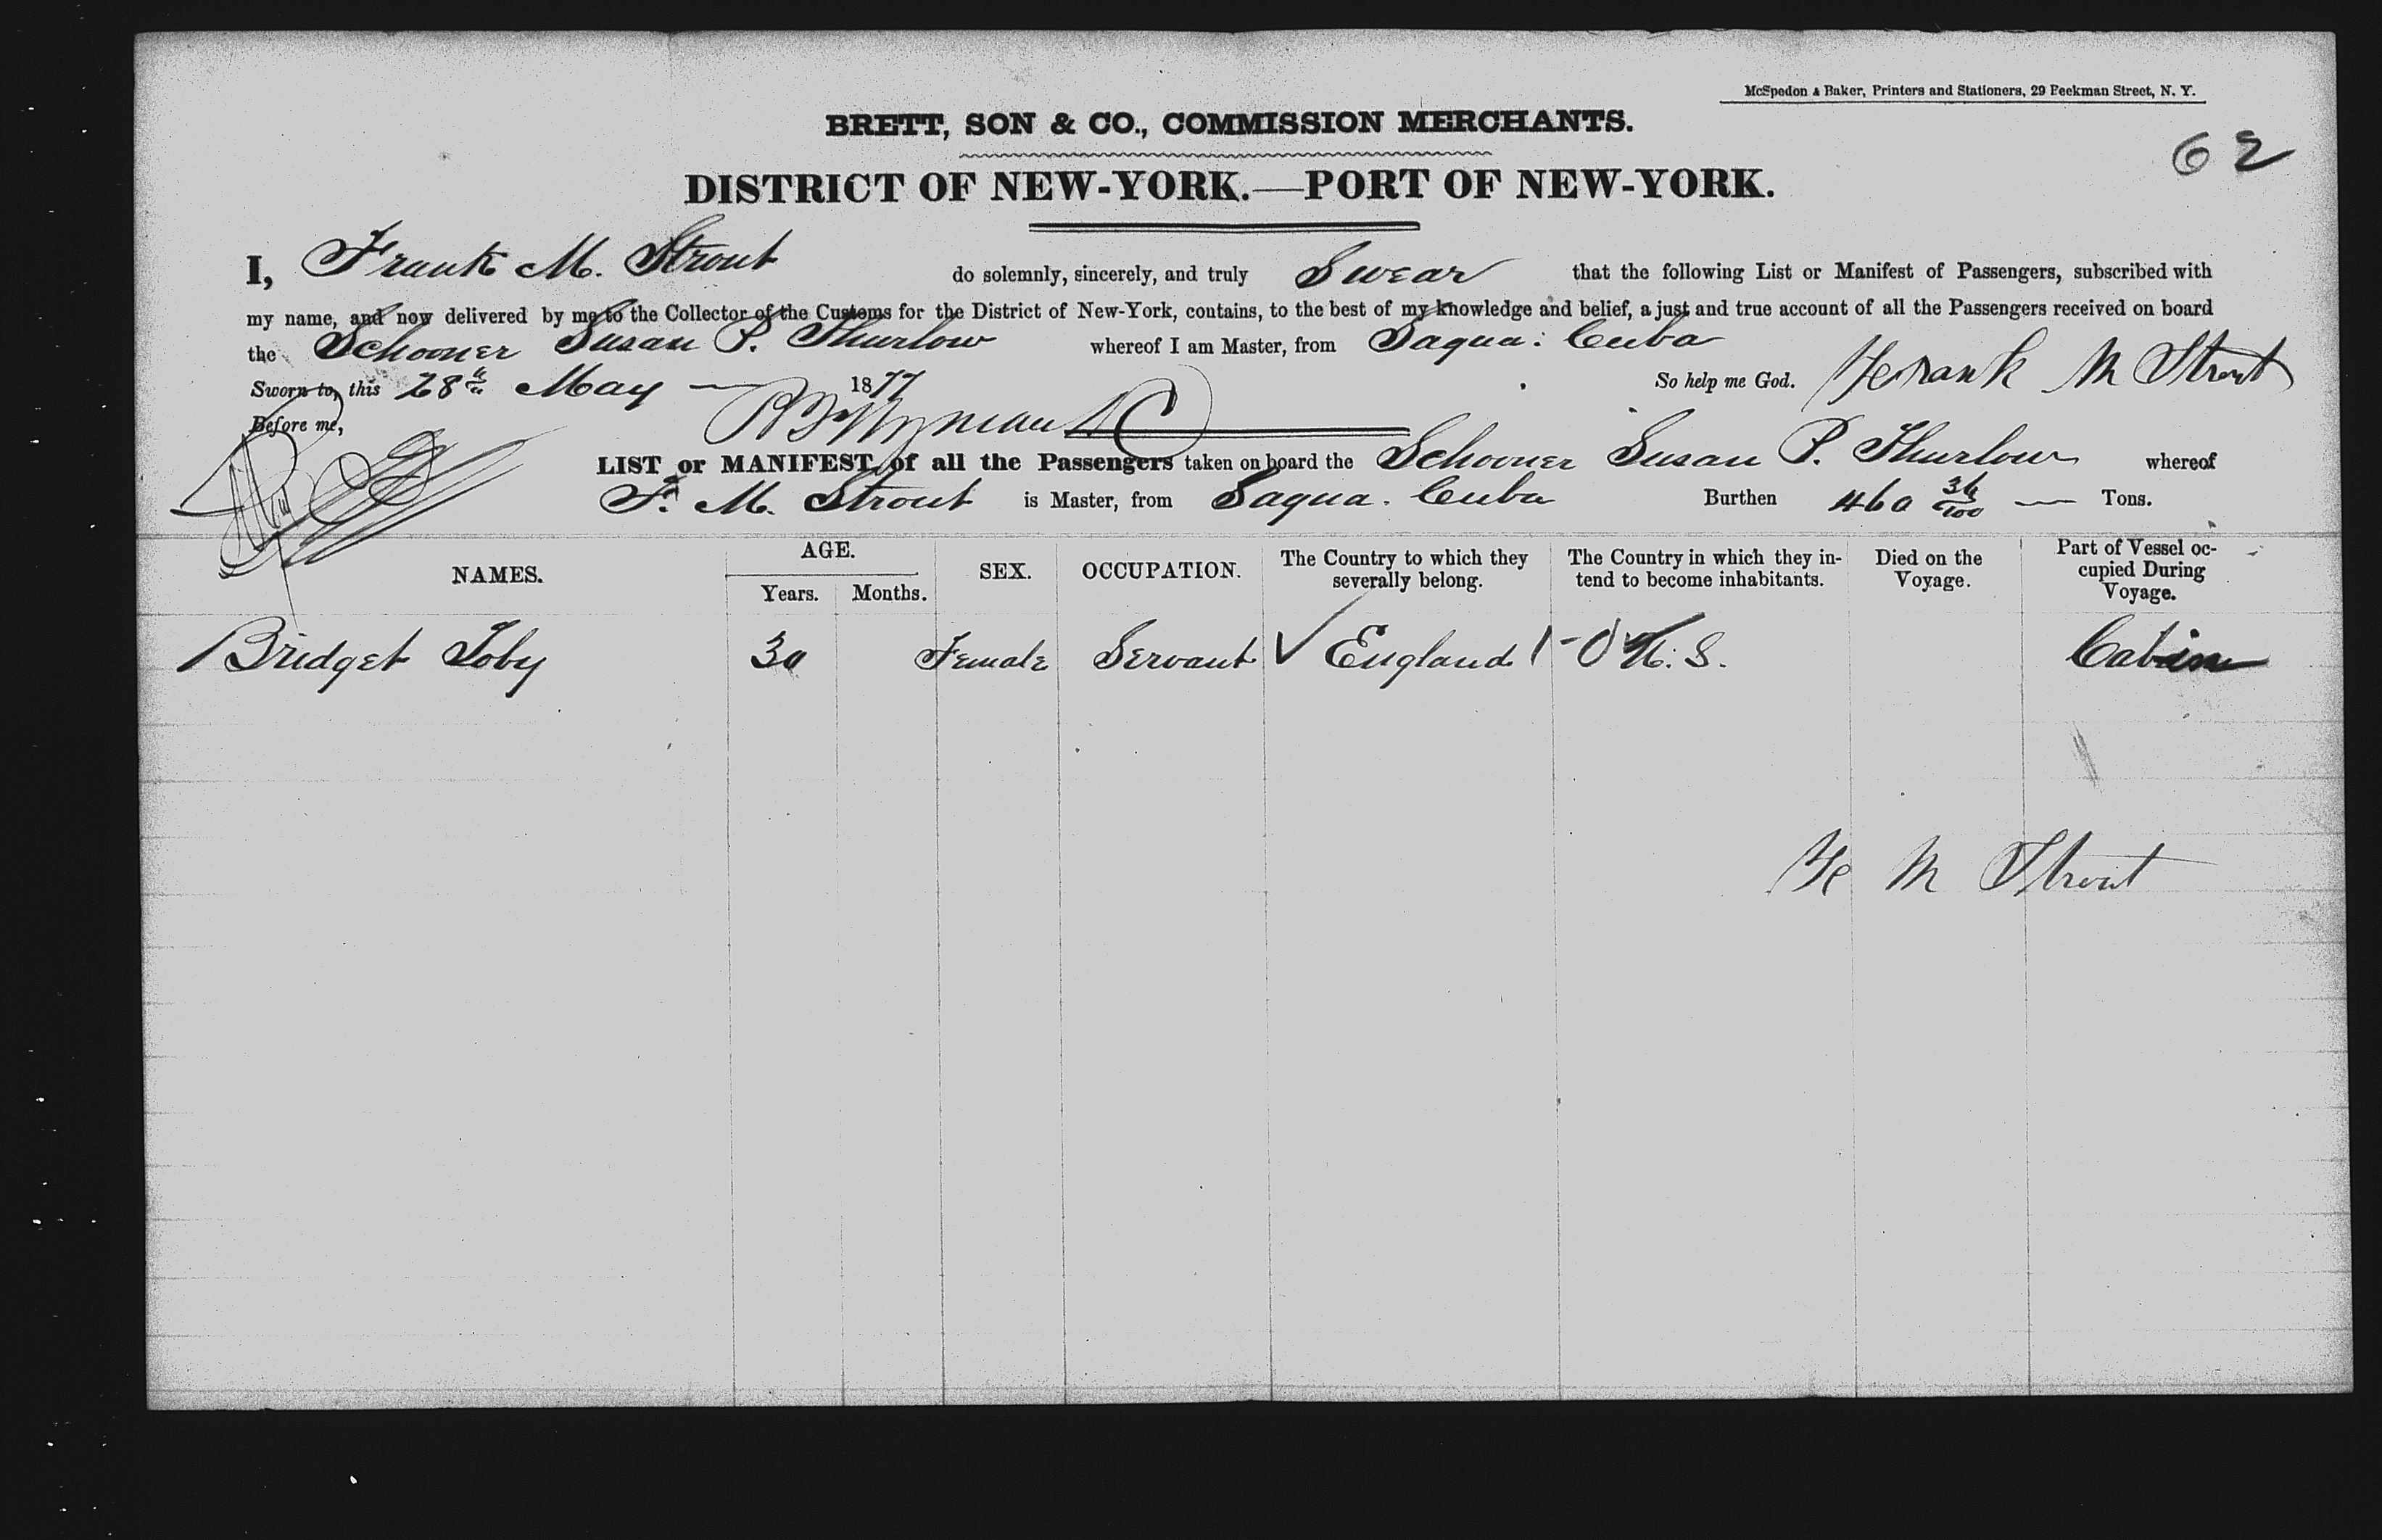 McSpedon & Baker, Printers and Stationers, 29 Beekman Street, N. Y.
BRETT, SON & CO., COMMISSION MERCHANTS.
62
DISTRICT OF NEW-YORK.—PORT OF NEW-YORK.
I, Frank M. Strout do solemnly, sincerely, and truly Swear that the following List or Manifest of Passengers, subscribed with
my name, and now delivered by me to the Collector of the Customs for the District of New-York, contains, to the best of my knowledge and belief, a just and true account of all the Passengers received on board
the Schooner Susan P. Thurlow whereof I am Master, from Sagua. Cuba
Sworn to, this 28th May — 1877 So help me God. Frank M Strout
Before me,
LIST or MANIFEST of all the Passengers taken on board the Schooner Susan P. Thurlow whereof
F. M. Strout is Master, from Sagua. Cuba Burthen 460 36/100 — Tons.
NAMES. AGE. Years. Months. SEX. OCCUPATION. The Country to which they severally belong. The Country in which they intend to become inhabitants. Died on the Voyage. Part of Vessel occupied During Voyage.
Bridget Toby 30 Female Servant England U.S. Cabin
F M Strout